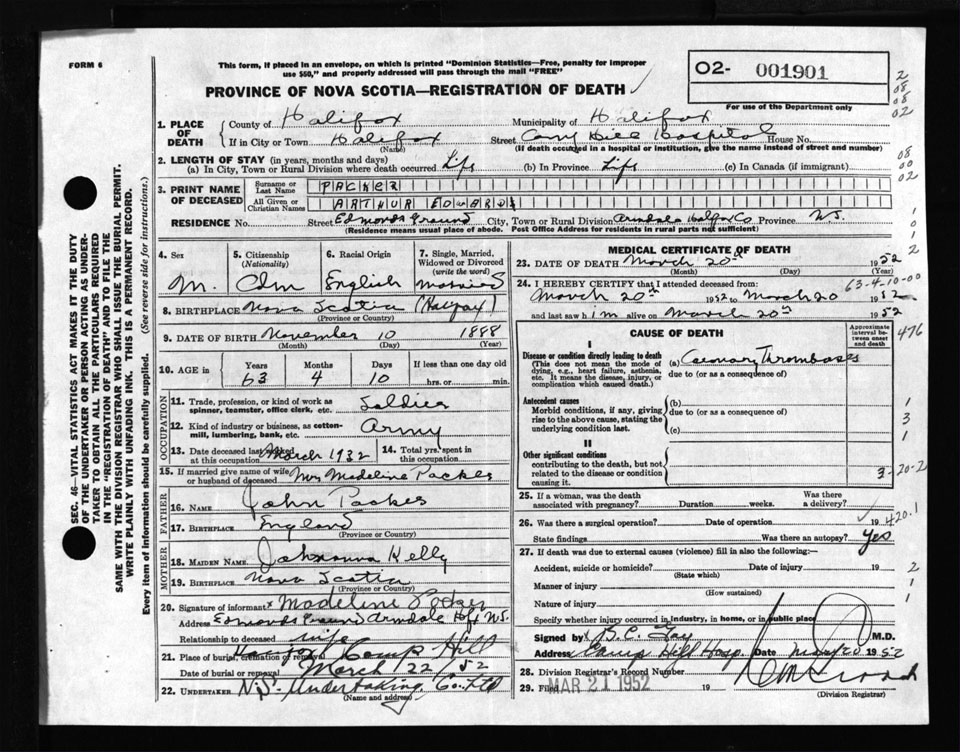 FORM 6
This form, if placed in an envelope, on which is printed "Dominion Statistics—Free, penalty for improper
use $50," and properly addressed will pass through the mail "FREE"
O2- 001901
For use of the Department only
PROVINCE OF NOVA SCOTIA—REGISTRATION OF DEATH
2
08
08
02
1. PLACE OF DEATH
County of Halifax Municipality of Halifax
If in City or Town Halifax Street Camp Hill Hospital House No.
(Name) (If death occurred in a hospital or institution, give the name instead of street and number)
2. LENGTH OF STAY (in years, months and days)
(a) In City, Town or Rural Division where death occurred Life (b) In Province Life (c) In Canada (if immigrant)
08
00
02
3. PRINT NAME OF DECEASED
Surname or Last Name PACKER
All Given or Christian Names ARTHUR EDWARD
RESIDENCE No. Street Edmonds Ground City, Town or Rural Division Armdale Halifax Co Province N.S.
(Residence means usual place of abode. Post Office Address for residents in rural parts not sufficient)
4. Sex
M.
5. Citizenship
(Nationality)
Cdn
6. Racial Origin
English
7. Single, Married,
Widowed or Divorced
(write the word)
Married
8. BIRTHPLACE Nova Scotia (Halifax)
(Province or Country)
9. DATE OF BIRTH November 10 1888
(Month) (Day) (Year)
10. AGE in
Years Months Days If less than one day old
63 4 10 hrs. or min.
OCCUPATION
11. Trade, profession, or kind of work as
spinner, teamster, office clerk, etc. Soldier
12. Kind of industry or business, as cotton-
mill, lumbering, bank, etc. Army
13. Date deceased last worked
at this occupation March 1932
14. Total yrs. spent in
this occupation
15. If married give name of wife
or husband of deceased Mrs Madeline Packer
FATHER
16. Name John Packer
17. Birthplace England
(Province or Country)
MOTHER
18. MAIDEN NAME Johanna Kelly
19. BIRTHPLACE Nova Scotia
(Province or Country)
20. Signature of informant x Madeline Packer
Address Edmonds Ground Armdale Hfx N.S.
Relationship to deceased wife
21. Place of burial, cremation or removal Camp Hill
Date of burial or removal March 22 52
22. UNDERTAKER N.S. Undertaking Co. Ltd
(Name and address)
MEDICAL CERTIFICATE OF DEATH
23. DATE OF DEATH March 20th 1952
(Month) (Day) (Year)
63-4-10-00
24. I HEREBY CERTIFY that I attended deceased from:
March 20th 1952 to March 20 1952
and last saw him alive on March 20th 1952
CAUSE OF DEATH
Approximate
interval be-
tween onset
and death
476
I
Disease or condition directly leading to death
(This does not mean the mode of
dying, e.g., heart failure, asthenia,
etc. It means the disease, injury, or
complication which caused death.)
(a) Coronary Thrombosis
due to (or as a consequence of)
Antecedent causes
Morbid conditions, if any, giving
rise to the above cause, stating the
underlying condition last.
(b)
due to (or as a consequence of)
(c)
1
3
1
II
Other significant conditions
contributing to the death, but not
related to the disease or condition
causing it.
3-20-2
25. If a woman, was the death
associated with pregnancy? Duration weeks. Was there
a delivery?
26. Was there a surgical operation? Date of operation 19
420.1
State findings Was there an autopsy? Yes
27. If death was due to external causes (violence) fill in also the following:—
Accident, suicide or homicide? Date of injury 19
(State which)
Manner of injury
(How sustained)
Nature of injury
2
1
1
Specify whether injury occurred in industry, in home, or in public place
Signed by M.D.
Address Camp Hill Hosp. Date Mar 20 1952
28. Division Registrar's Record Number
29. Filed MAR 21 1952 19
(Division Registrar)
SEC. 46—VITAL STATISTICS ACT MAKES IT THE DUTY
OF THE UNDERTAKER OR PERSON ACTING AS UNDER-
TAKER TO OBTAIN ALL THE PARTICULARS REQUIRED
IN THE "REGISTRATION OF DEATH" AND TO FILE THE
SAME WITH THE DIVISION REGISTRAR WHO SHALL ISSUE THE BURIAL PERMIT.
WRITE PLAINLY WITH UNFADING INK. THIS IS A PERMANENT RECORD.
Every item of information should be carefully supplied. (See reverse side for instructions.)